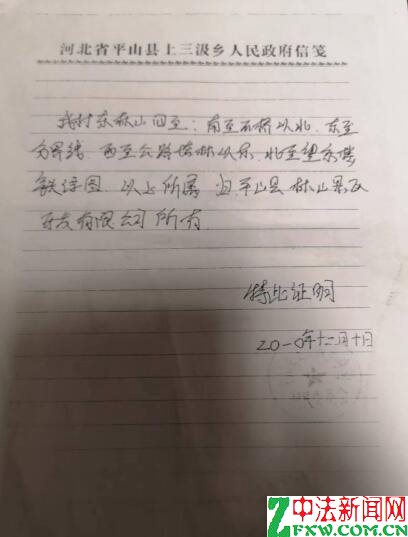 河北省平山县上三汲乡人民政府信笺
我村东林山四至：南至石桥以北，东至
分界线，西至公路塔林以东，北至望东楼
铁丝围，以上所属归平山县林山景区
开发有限公司所有
特此证明
二〇一〇年十二月十日
中法新闻网
ZFXW.COM.CN